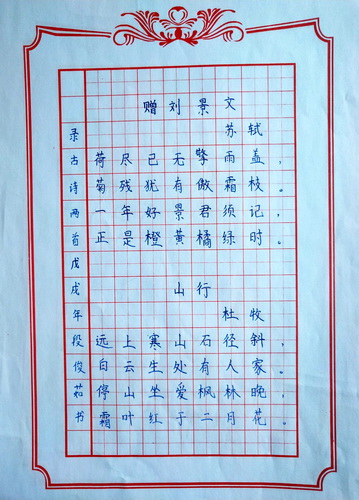 赠刘景文
苏轼
荷尽已无擎雨盖，
菊残犹有傲霜枝。
一年好景君须记，
正是橙黄橘绿时。
山行
杜牧
远上寒山石径斜，
白云生处有人家。
停山坐爱枫林晚，
霜叶红于二月花。
录古诗两首戊戌年段俊茹书